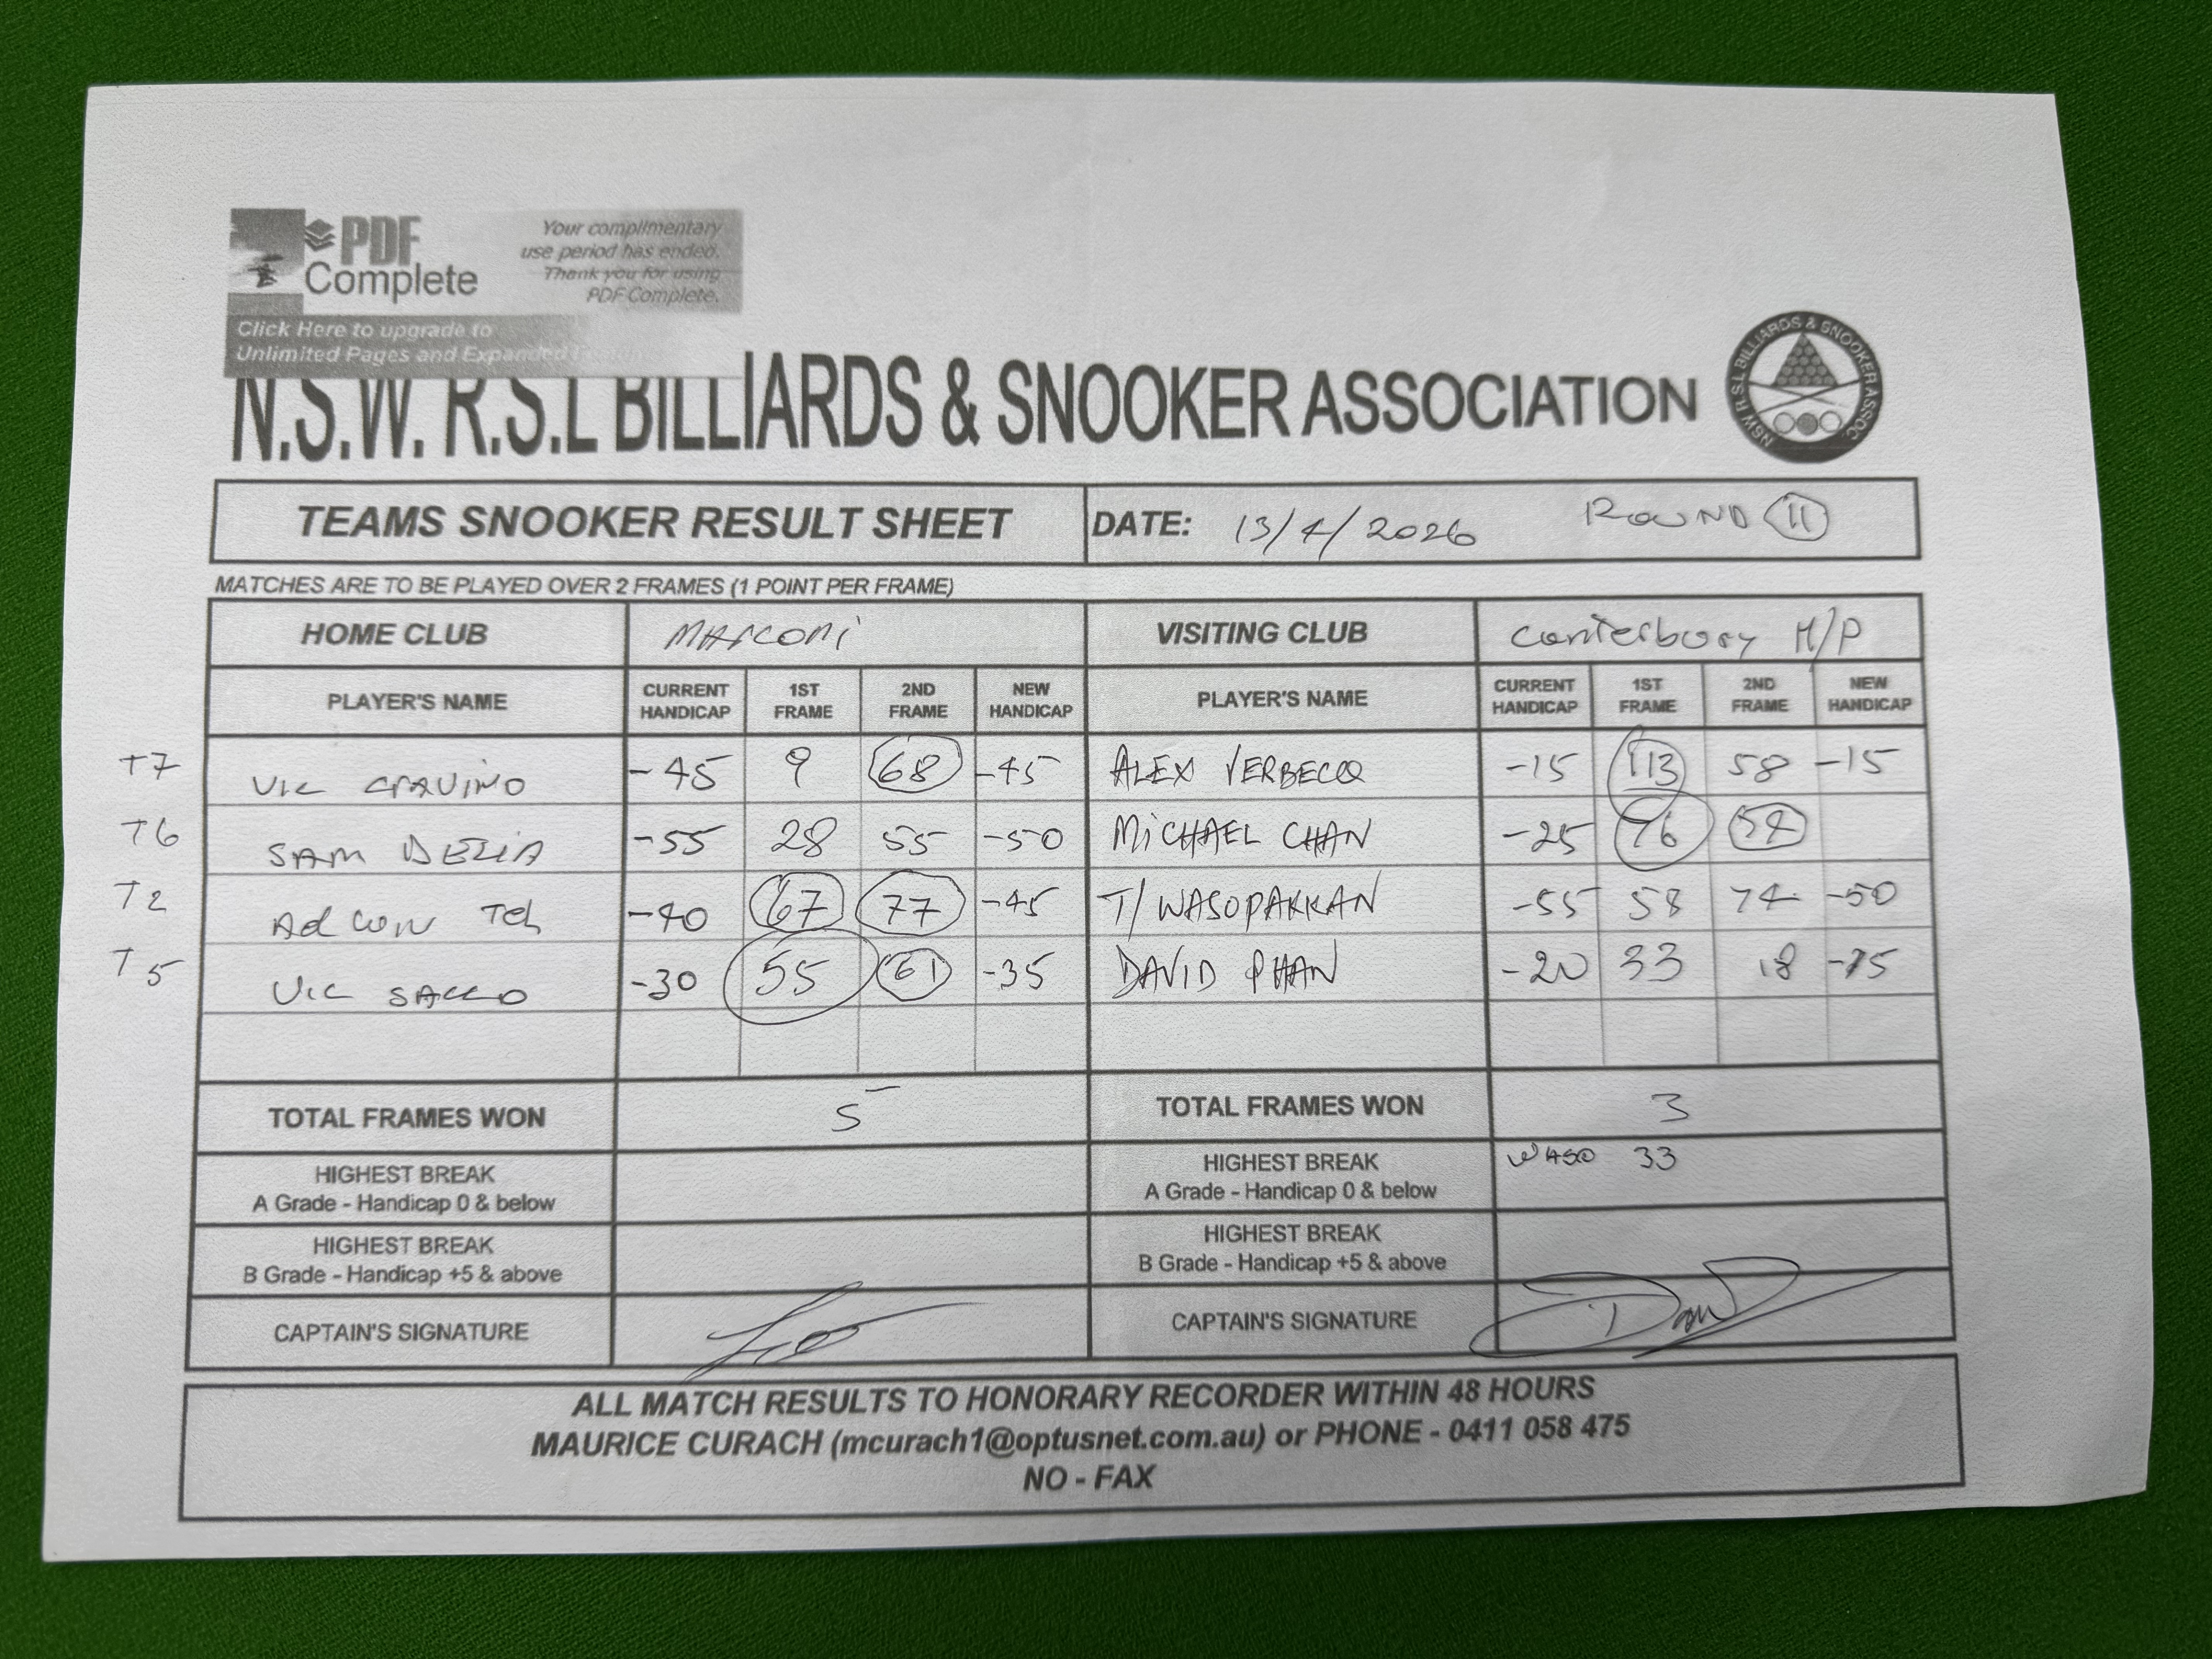 PDF Complete
Your complimentary
use period has ended.
Thank you for using
PDF Complete.
Click Here to upgrade to
Unlimited Pages and Expanded
N.S.W. R.S.L BILLIARDS & SNOOKER ASSOCIATION
NSW R.S.L BILLIARDS & SNOOKER ASSOC.
TEAMS SNOOKER RESULT SHEET DATE: 13/4/2026 ROUND 11
MATCHES ARE TO BE PLAYED OVER 2 FRAMES (1 POINT PER FRAME)
HOME CLUB Marconi VISITING CLUB Canterbury H/P
PLAYER'S NAME CURRENT HANDICAP 1ST FRAME 2ND FRAME NEW HANDICAP PLAYER'S NAME CURRENT HANDICAP 1ST FRAME 2ND FRAME NEW HANDICAP
T7 VIC CRAVINO -45 9 68 -45 ALEX VERBECQ -15 113 58 -15
T6 SAM DELIA -55 28 55 -50 MICHAEL CHAN -25 76
T2 -40 67 77 -45 T/WASOPAKKAN -55 58 74 -50
T5 VIC SACCO -30 55 61 -35 DAVID PHAN -20 33 18
TOTAL FRAMES WON 5 TOTAL FRAMES WON 3
HIGHEST BREAK
A Grade - Handicap 0 & below
HIGHEST BREAK
A Grade - Handicap 0 & below
WASO 33
HIGHEST BREAK
B Grade - Handicap +5 & above
HIGHEST BREAK
B Grade - Handicap +5 & above
CAPTAIN'S SIGNATURE CAPTAIN'S SIGNATURE
ALL MATCH RESULTS TO HONORARY RECORDER WITHIN 48 HOURS
MAURICE CURACH (mcurach1@optusnet.com.au) or PHONE - 0411 058 475
NO - FAX